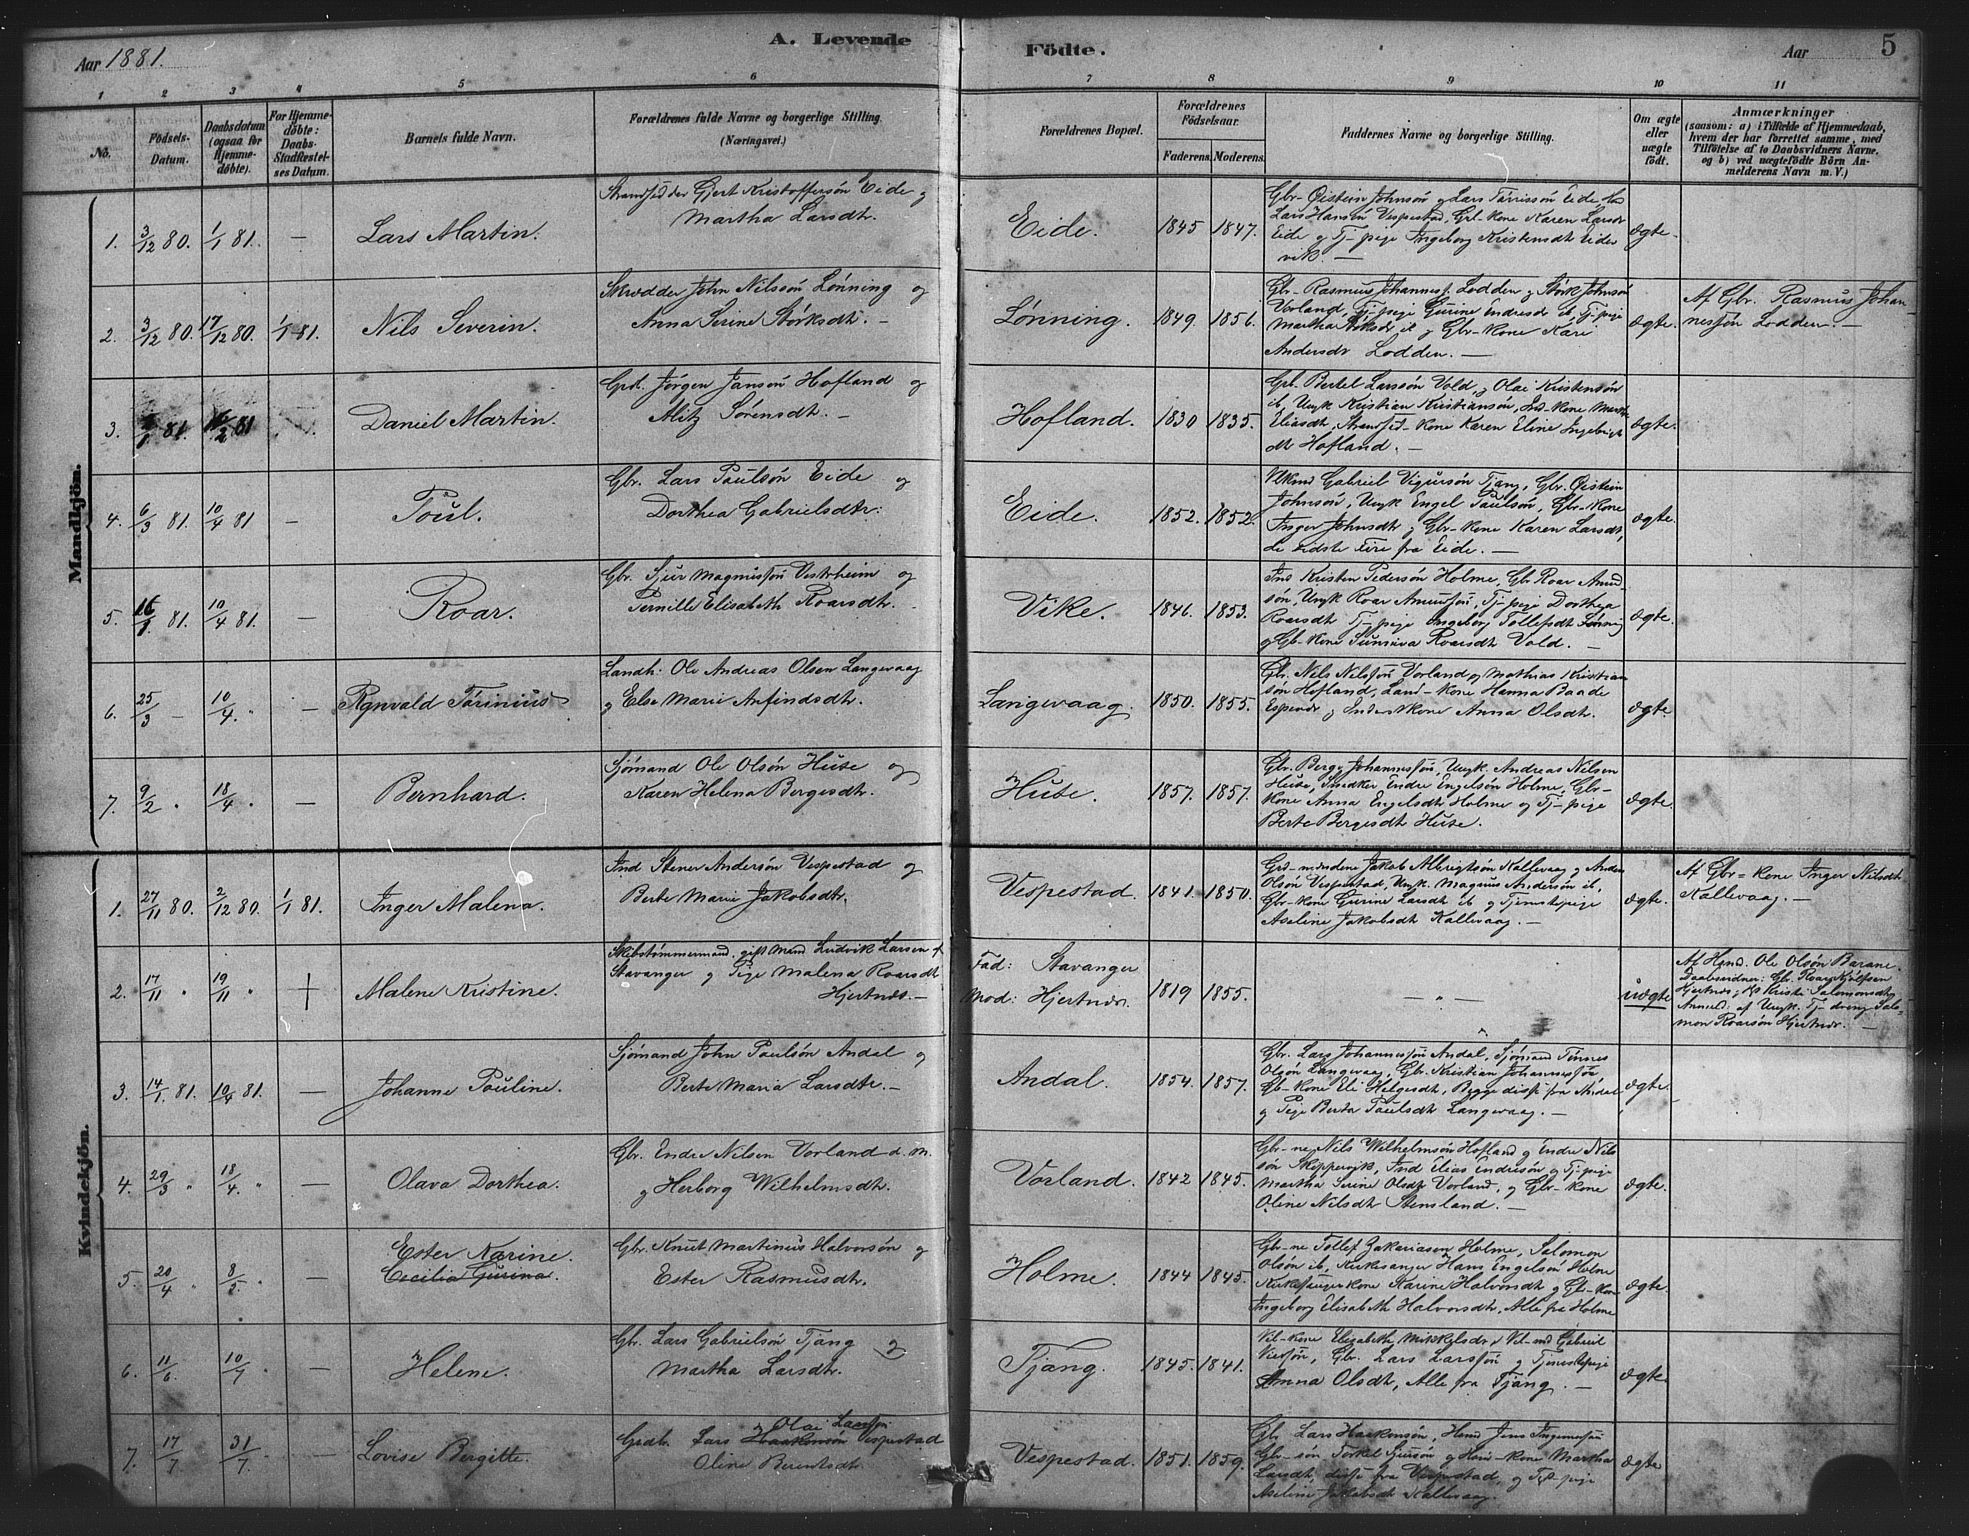 Aar 1881.
A. Levende
Födte.
Aar
5
1 2 3 4 5 6 7 8 9 10 11
No.
Födsels-Datum.
Daabsdatum (ogsaa for Hjemmedöbte).
For Hjemmedöbte: Daabs-Stadfæstelses Datum.
Barnets fulde Navn.
Forældrenes fulde Navne og borgerlige Stilling. (Næringsvei.)
Forældrenes Bopæl.
Forældrenes Födselsaar.
Faderens. Moderens.
Faddernes Navne og borgerlige Stilling.
Om ægte eller uægte födt.
Anmærkninger
(saasom: a) i Tilfælde af Hjemmedaab, hvem der har forrettet samme, med Tilföielse af to Daabsvidners Navne, og b) ved uægtefödte Börn Anmelderens Navn m. V.)
Mandkjön.
1. 3/12 80. 1/1 81. — Lars Martin.
Strandsidder Gjert Kristoffersön Eide og
Martha Larsdtr.
Eide. 1845 1847.
Gbr. Øistein Johnsön og Lars Tørrissön Eide
Lars Hansön Vespestad, Gbr-kone Karen Larsdr
Eide og Tj-pige Ingeborg Kristensdt Eides
vik. —
ægte.
2. 3/12 80. 17/12 80. 1/1 81. Nils Severin.
Skrædder John Nilssön Lønning og
Anna Serine Størksdtr. —
Lønning. 1849. 1856.
Gbr. Rasmus Johanness. Lodden og Størk Johnsön
Vorland, Tj-pige Gurine Endresdr ib, Tj-pige
Martha ib og Gbr-kone Kari
Andersdr Lodden. —
ægte.
Af Gbr. Rasmus Johan
nessön Lodden. —
3. 1/1 81. 16/2 81 Daniel Martin.
Grd. Jørgen Jansön Hofland og
Alitz Sørensdtr. —
Hofland. 1830 1835.
Grb. Bertel Larssön Vold, og Olai Kristensön
ib, Ungk Kristian Kristiansön, Ind-kone Marthe
Eliasdt, Strandsid-kone Karen Eline Ingebrigt
dt Hofland. —
ægte.
4. 6/3 81. 10/4 81 — Poul.
Gbr. Lars Poulsön Eide og
Dorthea Gabrielsdtr.
Eide. 1852. 1852.
Gabriel Vigursön Tjang, Gbr. Øistein
Johnsön, Ungk Engel Paulsön, Gbr-kone
Inger Johnsdt og Gbr-kone Karen Larsdt,
de sidste fire fra Eide. —
ægte.
5. 16/1 81. 10/4 81. — Roar.
Gbr. Sjur Magnussön Vestrheim og
Pernille Elisabeth Roarsdtr.
Vike. 1846. 1853.
Ind Kristen Pedersön Holme, Gbr Roar Amund
sön, Ungk Roar Amundsön, Tj-pige Dorthea
Roarsdt Tj-pige Ingeborg Tollefsdt Lønning
og Gbr-kone Sunniva Roarsdt Vold. —
ægte.
6. 25/3 — 10/4 " — Ragnvald Tørinius
Landh: Ole Andreas Olsen Langevaag
og Else Marie Anfindsdtr.
Langevaag. 1850. 1855.
Gbr. Nils Nilssön Vorland og Mathias Kristian
sön Hofland, Land-kone Hanna Baade
Espevær og Inderst kone Anna Olsdtr.
ægte.
7. 9/2 " 18/4 " — Bernhard.
Sjømand Ole Olsön Huse og
Karen Helena Bergesdtr.
Huse. 1857. 1857.
Gbr. Berge Johannessön, Ungk. Andreas Nilsen
Huse, Snedker Endre Engelsön Holme, Gbr-
kone Anna Engelsdt Holme og Tj-pige
Berte Bergesdt Huse.
ægte.
Kvindekjön.
1. 27/11 80. 2/12 80. 1/1 81. Inger Malena.
Ind Stener Andersön Vespestad og
Berte Marie Jakobsdtr.
Vespestad. 1841. 1850.
Grd-mændene Jakob Albrigtsön Kallevaag og Anders
Olsön Vespestad, Ungk. Magnus Andersön ib,
Gbr-kone Gurine Larsdt ib og Tjenestepige
Aseline Jakobsdt Kallevaag. —
ægte.
Af Gbr-kone Inger Nilsdt
Kallevaag. —
2. 17/11 " 19/11 " † Malene Kristine.
Skibstømmermand, gift Mand Ludvik Larsen af
Stavanger og Pige Malena Roarsdt
Hjertnæs. —
Fad: Stavanger
Mod: Hjertnæs.
1819 1855.
— " —
uægte
Af Hmd. Ole Olsön Barane.
Daabsvidner: Gbr. Roar
Hjertnæs, og Kristi Salomonsdtr,
Anmeld: af Ungk. Tj-dreng Salo-
mon Roarsön Hjertnæs. —
3. 14/1. 81. 10/4 81. — Johanne Pouline.
Sjømand John Paulsön Andal og
Berte Maria Larsdtr. —
Andal. 1854. 1857.
Gbr. Lars Johannessön Andal, Sjømand Tønnes
Olsön Langevaag, Gbr. Kristian Johannessön,
Gbr-kone Eli Helgesdt, Begge disse fra Andal
og Pige Berta Poulsdt Langevaag. —
ægte.
4. 29/3 " 18/4 " — Olava Dorthea.
Gbr. Endre Nilsen Vorland d. m.
og Herborg Wilhelmsdtr.
Vorland. 1842 1845.
Gbr-ne Nils Wilhelmsön Hofland og Endre Nils
sön Skippervik, Ind Elias Endresön og Tj-pige
Martha Serine Olsdt Vorland, og Gbr-kone
Oline Nilsdt Stensland. —
ægte.
5. 20/4 " 8/5 " — Ester Karine.
Cecilia Gurina.
Gbr. Knut Martinus Halvorsön og
Ester Rasmusdtr.
Holme. 1844 1845.
Gbr-ne Tollef Zakariasen Holme, Salomon
Olsön ib, Kirkesanger Hans Engelsön Holme
Kirkesangerkone Karine Halvorsdt og Gbr-kone
Ingeborg Elisabeth Halvorsdtr. Alle fra Holme
ægte.
6. 11/6 10/7 " — Helene.
Gbr. Lars Gabrielsön Tjang og
Martha Larsdtr.
Tjang. 1845. 1841.
Vil-kone Elisabeth Mikkelsdr, Vil-md Gabriel
Viersön, Gbr. Lars Larssön og Tjenestepige
Anna Olsdt, Alle fra Tjang. —
ægte.
7. 17/7 31/7 — Lovise Bergitte.
Olai Larssön
Grdb. Lars Haakonsön Vespestad
Oline Berentsdt.
Vespestad. 1851. 1859.
Gbr Lars Haakonsön, Hmd Jens Ingemussön
Gbr-sön Torkel Sjursön og Hmd-kone Martha
Larsdt, disse fra Vespestad, og Tj-pige
Aseline Jakobsdt Kallevaag.
ægte